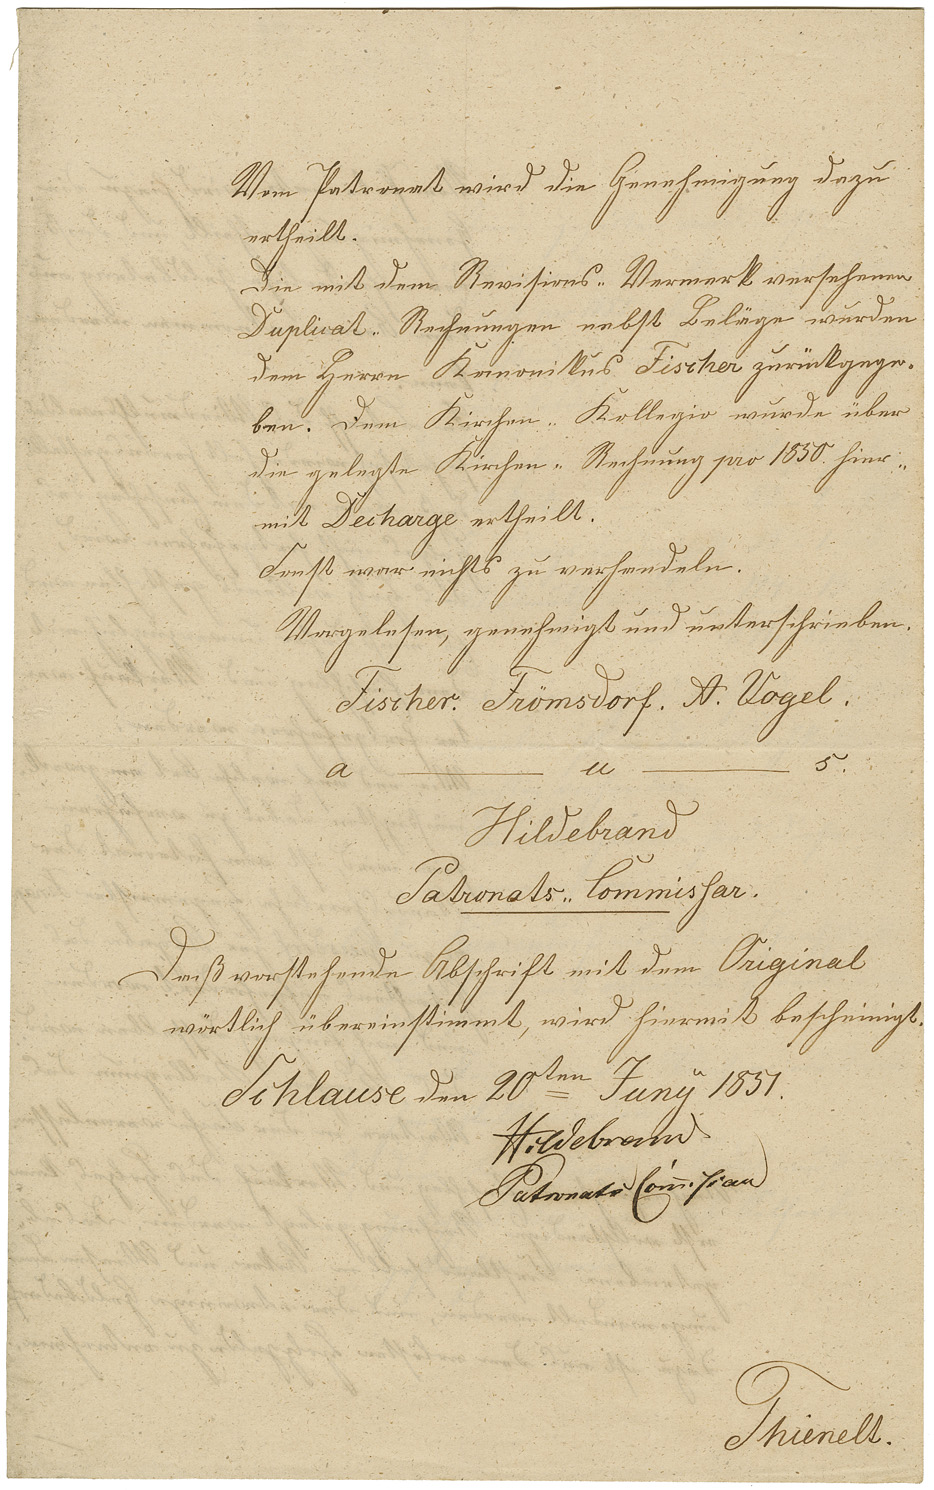 Vom Patronat wird die Genehmigung dazu
ertheilt.
Die mit dem Revisions-Vermerk versehenen
Duplicat-Rechnungen nebst Beläge wurden
dem Herrn Kanonikus Fischer zurückgege-
ben. Dem Kirchen-Kollegio wurde über
die gelegte Kirchen-Rechnung pro 1850 hier-
mit Decharge ertheilt.
Sonst war nichts zu verhandeln.
Vorgelesen, genehmigt und unterschrieben.
Fischer. Frömsdorf. A. Vogel.
a ——— u ——— s.
Hildebrand
Patronats-Commissar.
Daß vorstehende Abschrift mit dem Original
wörtlich übereinstimmt, wird hiermit bescheinigt.
Schlause den 20ten Juny 1851.
Hildebrand
Patronats Commissar
Thienelt.